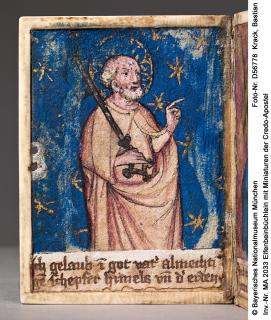 ich gelaub ī got vatʼ almechtī
gē schepfer himels vū dʼ erden
© Bayerisches Nationalmuseum München
Foto-Nr. D56778 Krack, Bastian
Inv.-Nr. MA 2033 Elfenbeinbüchlein mit Miniaturen der Credo-Apostel